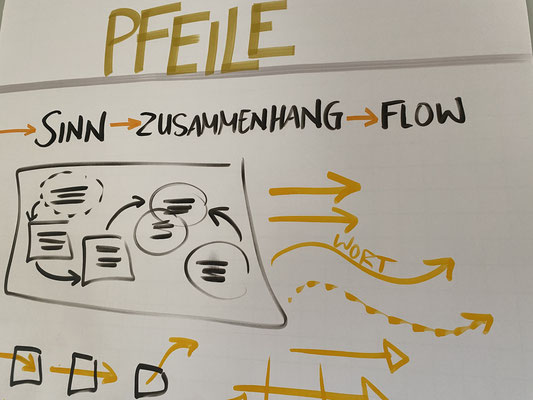 PFEILE
→ SINN → ZUSAMMENHANG → FLOW
WORT